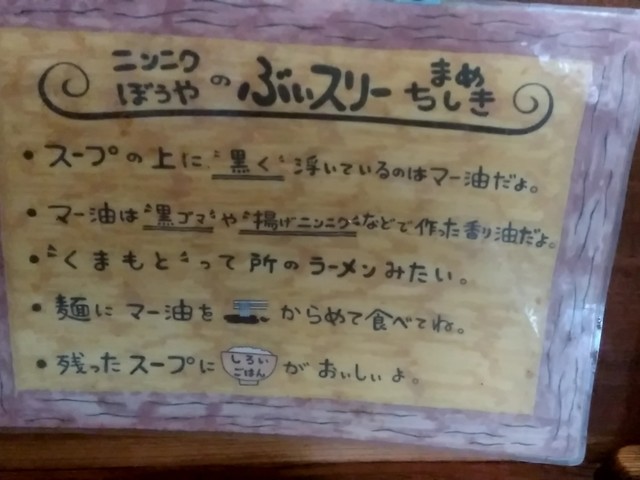 ニンニクぼうやのぶぃスリーまめちしき
• スープの上に〝黒く〟浮いているのはマー油だよ。
• マー油は〝黒ゴマ〟や〝揚げニンニク〟などで作った香り油だよ。
• 〝くまもと〟って所のラーメンみたい。
• 麺にマー油をからめて食べてね。
• 残ったスープにしろいごはんがおぃしぃよ。